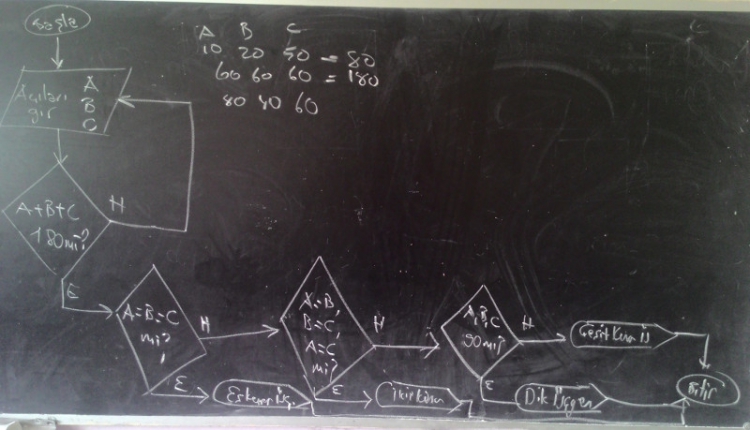 Başla
A B C
10 20 50 = 80
60 60 60 = 180
80 40 60
Açıları
gir
A
B
C
A+B+C
180 mi?
H
E
A=B=C
mi?
H
E
A=B,
B=C,
A=C
mi?
H
E
A,B,C
90 mı?
H
E
Çeşitkenar
Eşkenar Üçg.
İkizkenar
Dik Üçgen
Bitir